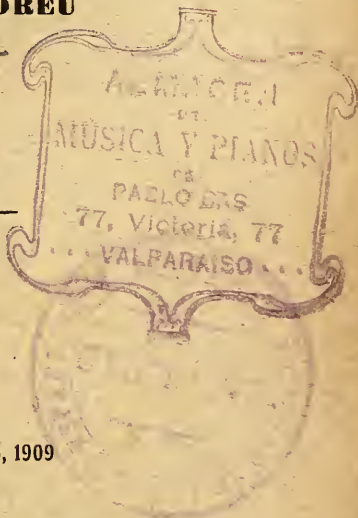 OREU
ALMACEN
DE
MÚSICA Y PIANOS
DE
PABLO
77, Victoria, 77
VALPARAISO
, 1909